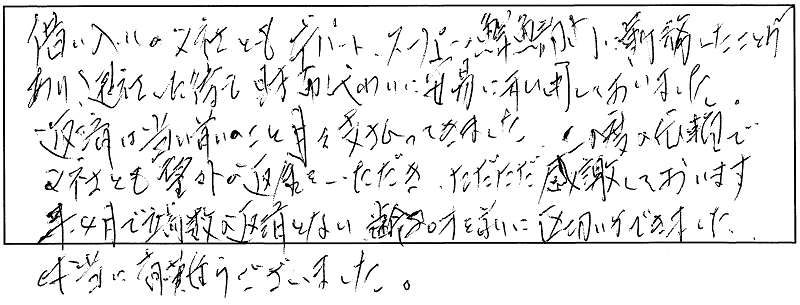 借り入れの2社ともデパート、スーパーの鮮魚部に勤務したことが
あり、退社した後も財布代わりに安易に利用しておりました。
返済は当り前のこと月々支払ってきました。今度の依頼で
2社とも望外の返金をいただき、ただただ感謝しております
年4月で端数の返済となり、齢80才を前に区切りができました。
本当に有難うございました。